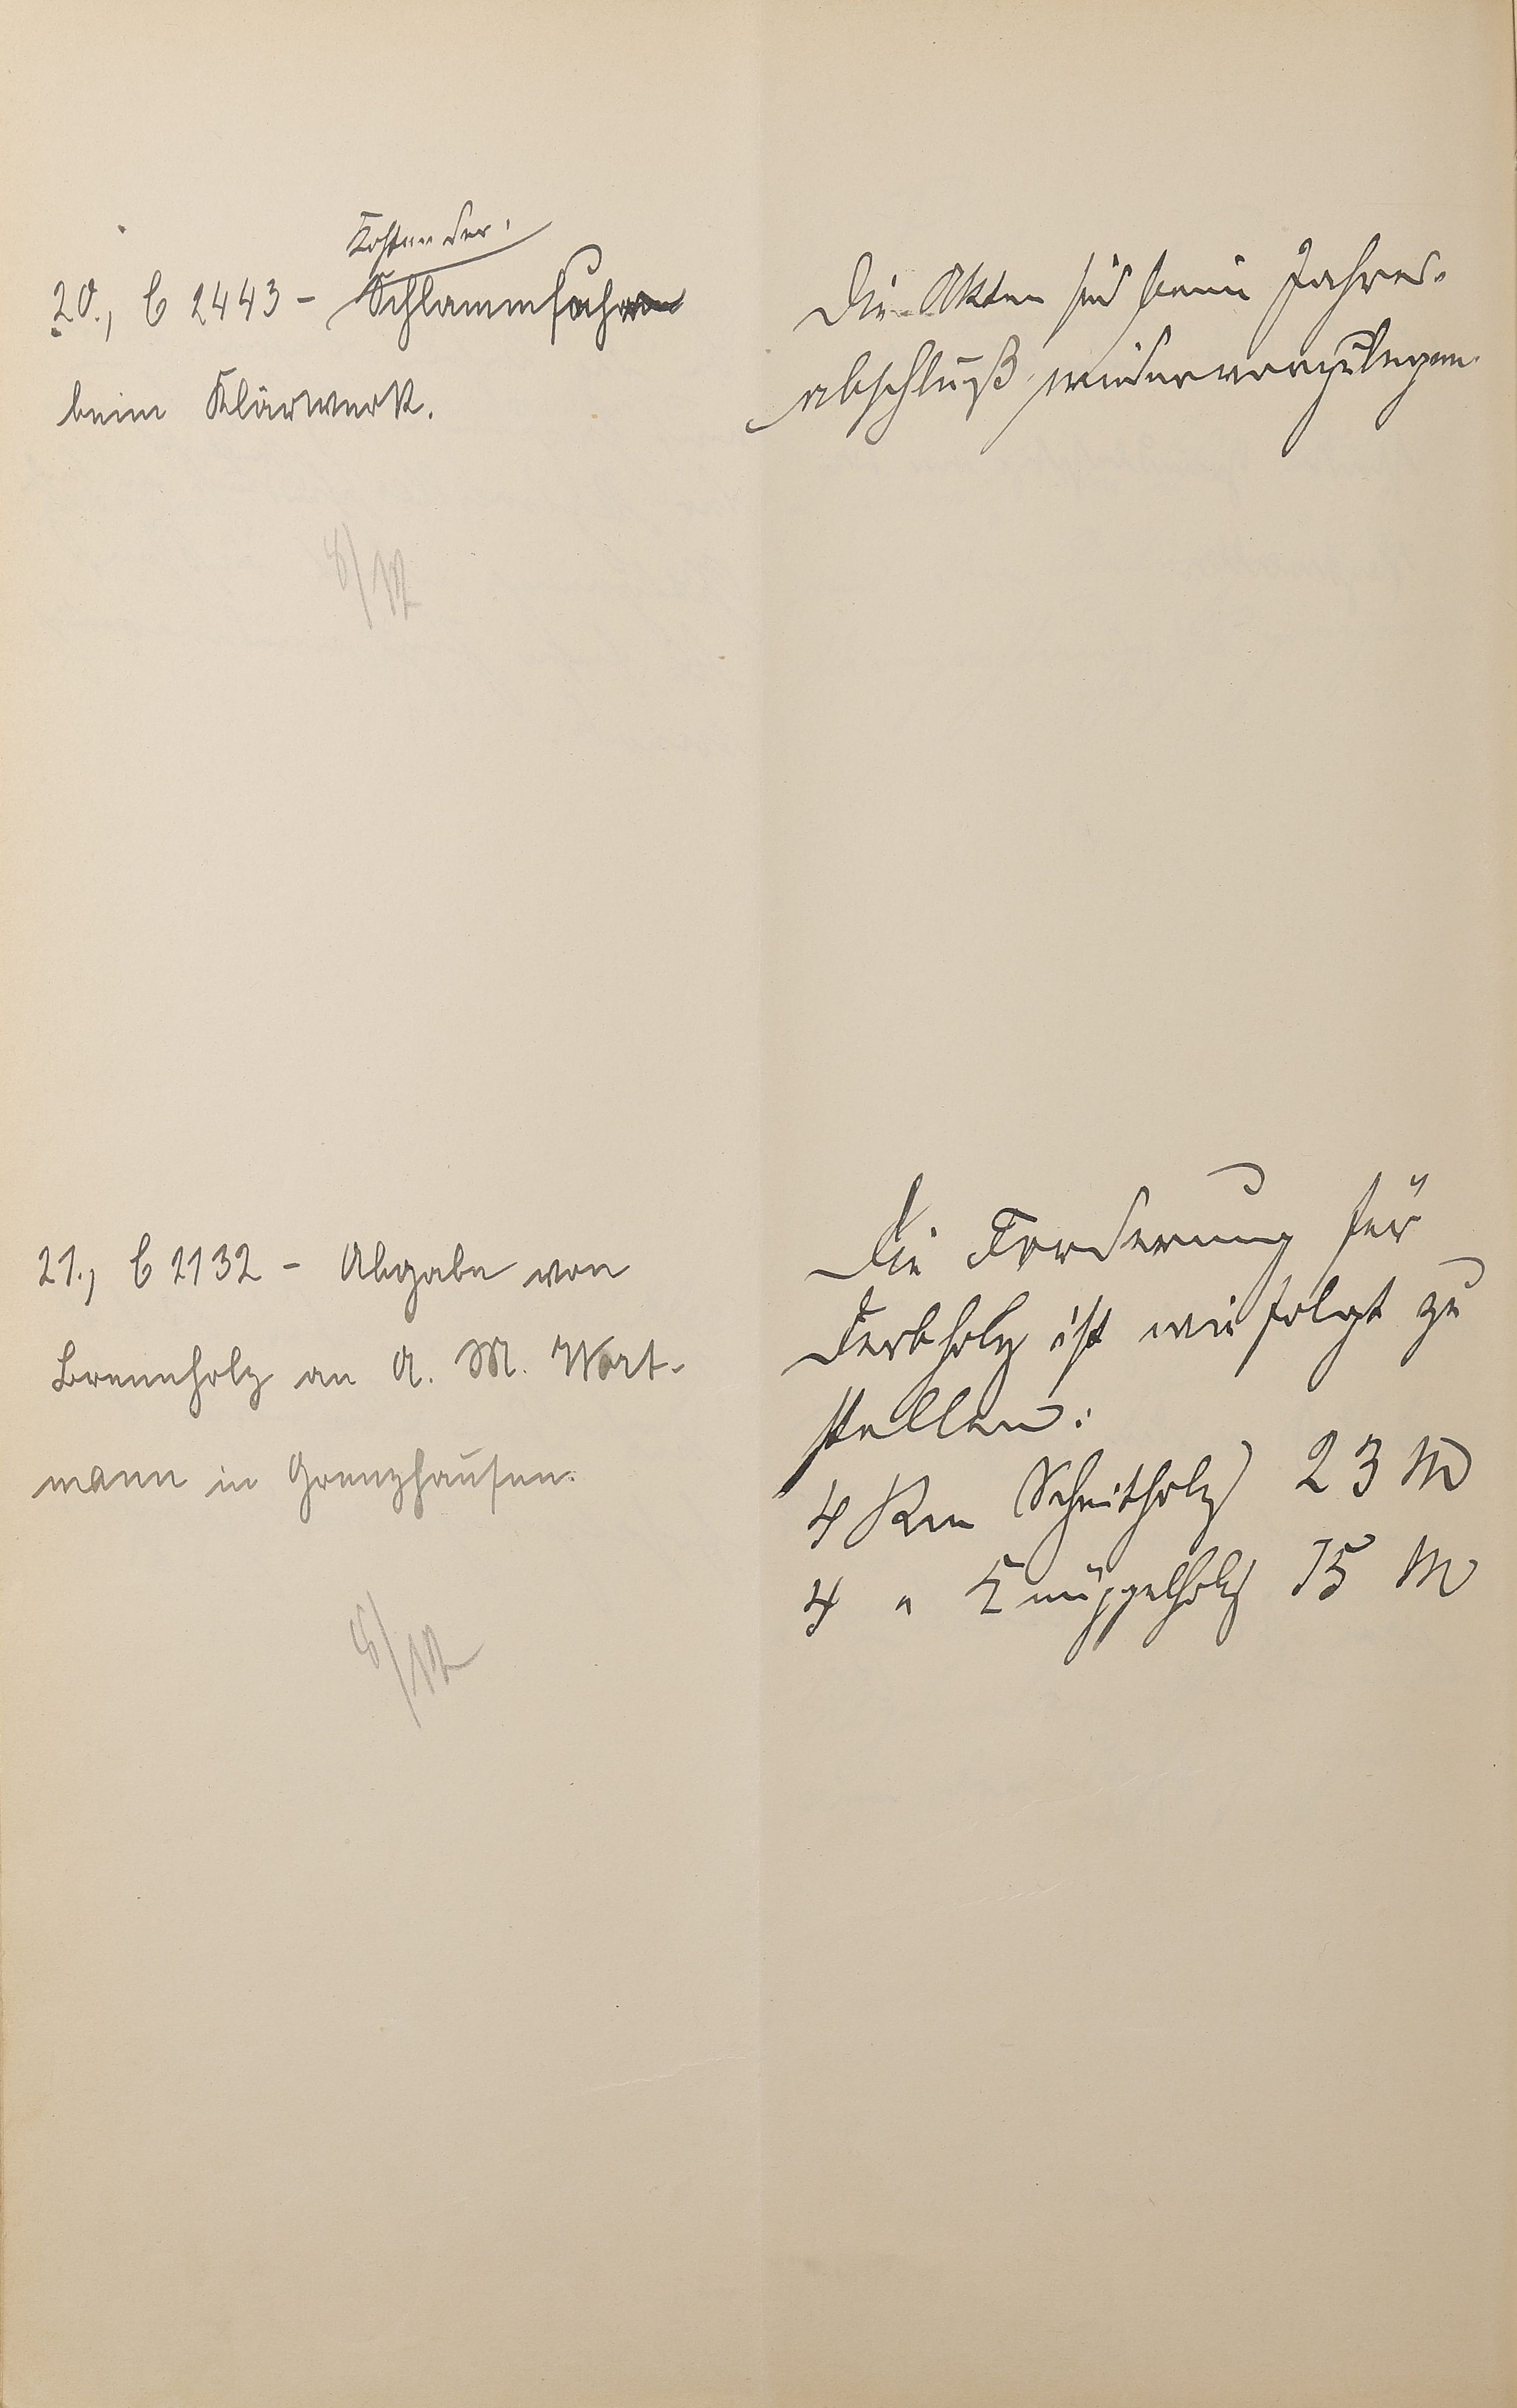 Kosten der
20., C 2443 - Schlammfuhren
beim Klärwerk.
Die Akten sind beim Jahres-
abschluß wiedervorzulegen.
8/12
21., C 2132 - Abgabe von
Brennholz an A. M. Wort-
mann in Grenzhausen.
8/12
Die Forderung für
Derbholz ist wie folgt zu
stellen:
4 Rm Scheitholz 23 M
4 " Knüppelholz 15 M